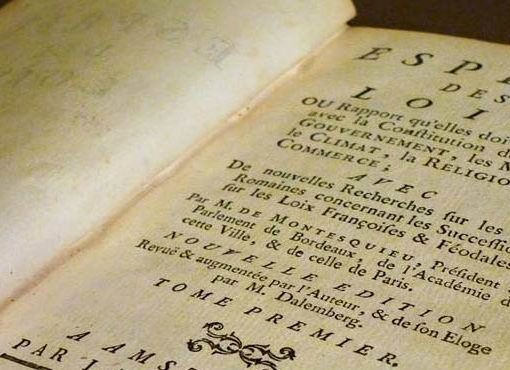 ESP
DES
LOI
OU Rapport qu'elles doi
avec la Constitution d
GOUVERNEMENT, les M
le CLIMAT, la RELIGIO
COMMERCE;
AVEC
De nouvelles Recherches sur les
Romaines concernant les Successi
sur les Loix Françoises & Féodales
Par M. DE MONTESQUIEU, Président
Parlement de Bordeaux, de l'Académie d
cette Ville, & de celle de Paris.
NOUVELLE EDITION
Revuë & augmentée par l'Auteur, & de son Eloge
par M. Dalemberg.
TOME PREMIER.
A AMS
PAR